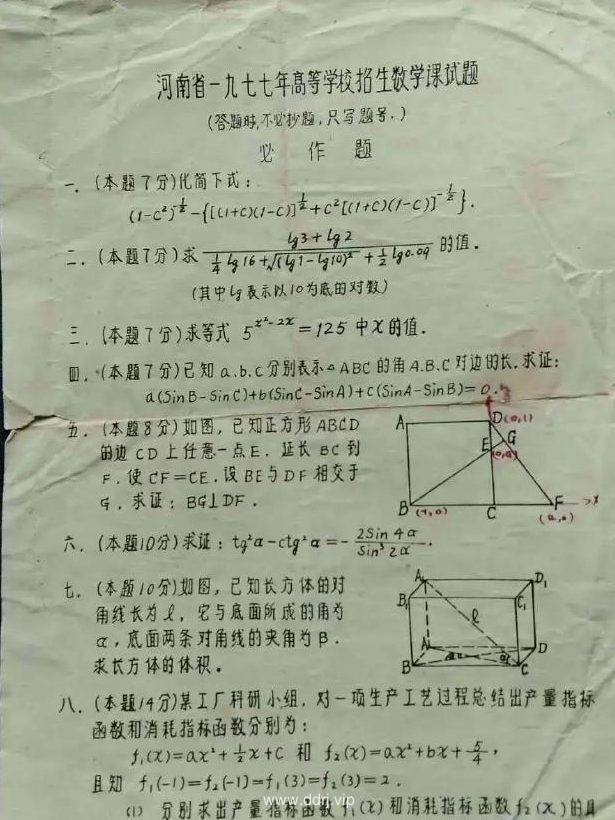 河南省一九七七年高等学校招生数学课试题
(答题时,不必抄题,只写题号.)
必 作 题
一. (本题7分)化简下式:
(1-C²)^{-1/2}-{[(1+C)(1-C)]^{1/2}+C²[(1+C)(1-C)]^{-1/2}}.
二. (本题7分)求 \frac{lg3+lg2}{\frac{1}{4}lg16+\sqrt{(lg1-lg10)²}+\frac{1}{2}lg0.09} 的值.
(其中lg表示以10为底的对数)
三. (本题7分)求等式 5^{x²-2x}=125 中x的值.
四. (本题7分)已知a.b.c分别表示△ABC的角A.B.C对边的长.求证:
a(SinB-SinC)+b(SinC-SinA)+c(SinA-SinB)=0.
五. (本题8分)如图,已知正方形ABCD
的边CD上任意一点E. 延长BC到
F.使CF=CE.设BE与DF相交于
G.求证:BG⊥DF.
A D (0,1)
E G
B C F x
六. (本题10分)求证:tg²α-ctg²α=-\frac{2Sin4α}{Sin³2α}.
七. (本题10分)如图,已知长方体的对
角线长为l,它与底面所成的角为
α,底面两条对角线的夹角为β.
求长方体的体积.
A₁ D₁
B₁ C₁
l
A D
B C
八. (本题14分)某工厂科研小组,对一项生产工艺过程总结出产量指标
函数和消耗指标函数分别为:
f₁(x)=ax²+\frac{1}{2}x+C 和 f₂(x)=ax²+bx+\frac{5}{4},
且知 f₁(-1)=f₂(-1)=f₁(3)=f₂(3)=2.
(1) 分别求出产量指标函数f₁(x)和消耗指标函数f₂(x)的具
www.ddrj.vip